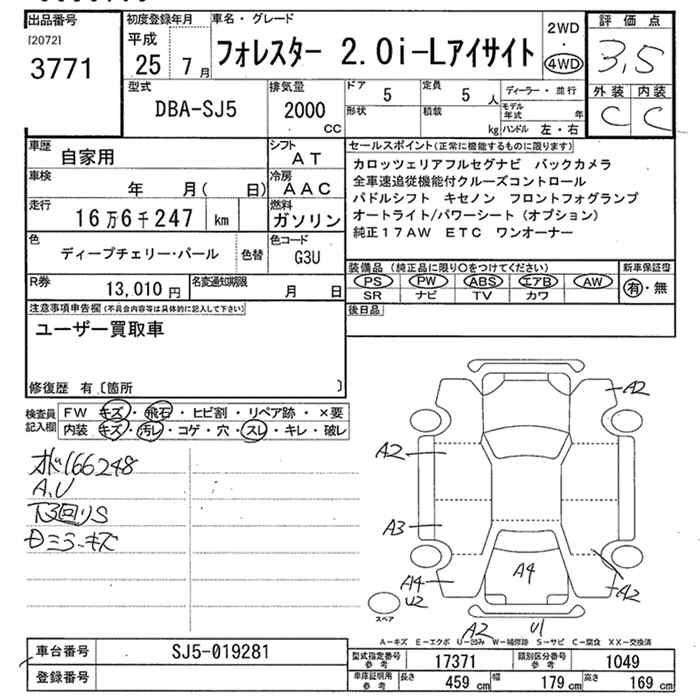 出品番号
[2072]
3771
初度登録年月
平成
25 7月
車名・グレード
フォレスター 2.0i-Lアイサイト
2WD
・
4WD
評価点
3,5
外装 内装
C C
型式
DBA-SJ5
排気量
2000
CC
ドア
5
定員
5 人
形状
積載
kg
ディーラー・並行
モデル年式 年
ハンドル 左・右
車歴
自家用
シフト
AT
車検
年 月( 日)
冷房
AAC
走行
16万6千247 km
燃料
ガソリン
色
ディープチェリー・パール
色替
色コード
G3U
R券
13,010 円
名変通知期限
月 日
セールスポイント(正常に機能するものに限ります)
カロッツェリアフルセグナビ バックカメラ
全車速追従機能付クルーズコントロール
パドルシフト キセノン フロントフォグランプ
オートライト/パワーシート(オプション)
純正17AW ETC ワンオーナー
装備品(純正品に限り○をつけてください)
PS PW ABS エアB AW
SR ナビ TV カワ
新車保証書
有・無
後日品
注意事項申告欄(不具合内容等は具体的に記入して下さい)
ユーザー買取車
修復歴 有〔箇所 〕
検査員記入欄
FW キズ・飛石・ヒビ割・リペア跡・×要
内装 キズ・汚レ・コゲ・穴・スレ・キレ・破レ
166248
A,U
下回りS
Dミラーキズ
A2
A2
A3
A4
U2
A4
A2
A2
U1
スペア
A-キズ E-エクボ U-凹み W-補修跡 S-サビ C-腐食 XX-交換済
車台番号
SJ5-019281
登録番号
型式指定番号
参考
17371
類別区分番号
参考
1049
車庫証明用
参考
長さ 459 cm
幅 179 cm
高さ 169 cm